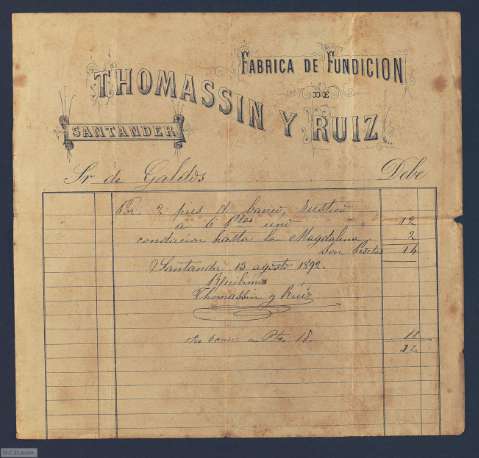 FABRICA DE FUNDICION
DE
THOMASSIN Y RUIZ
SANTANDER
Sr de Galdós Debe
Por 2 pies de banco, rustico
a 6 ptas uno 12
conducion hasta la Magdalena 2
Son Pesetas 14
Santander 13 agosto 1892
Thomassin y Ruiz
otro banco 18 18
32